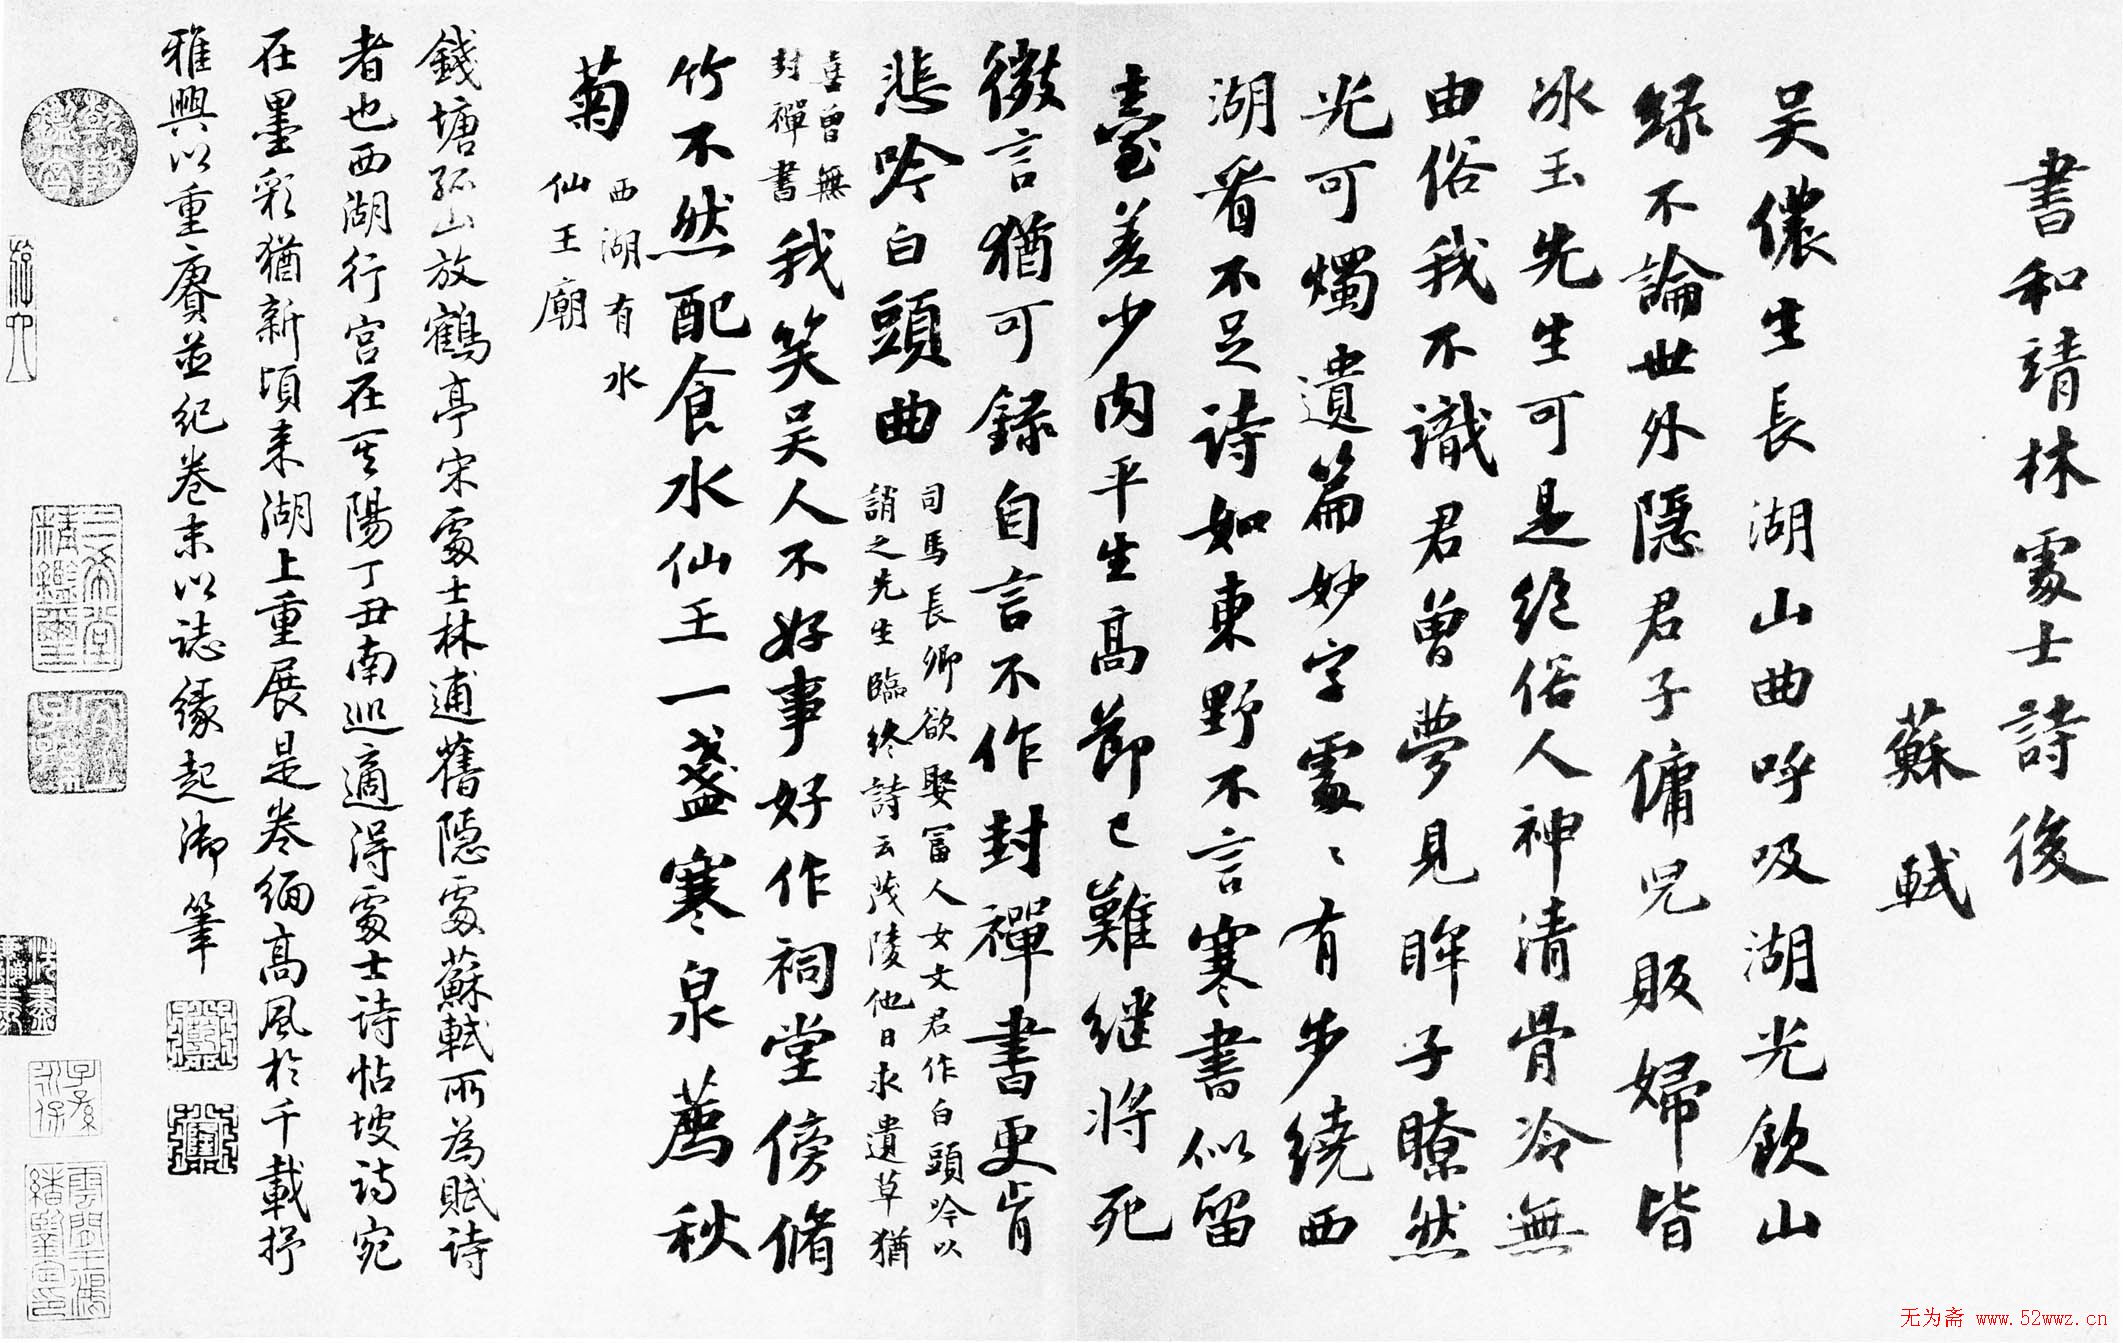 書和靖林處士詩後
蘇軾
吴儂生長湖山曲呼吸湖光飲山
緑不論世外隱君子傭兒販婦皆
冰玉先生可是絕俗人神清骨冷無
由俗我不識君曾夢見眸子瞭然
光可燭遺篇妙字處〻有步繞西
湖看不足詩如東野不言寒書似留
臺差少肉平生高節已難继將死
微言猶可録自言不作封禪書更肯
悲吟白頭曲
司馬長卿欲娶富人女文君作白頭吟以
誚之先生臨終詩云茂陵他日求遺草猶
喜曾無
封禪書
我笑吴人不好事好作祠堂傍脩
竹不然配食水仙王一盞寒泉薦秋
菊
西湖有水
仙王廟
錢塘孤山放鶴亭宋處士林逋舊隱處蘇軾所為賦詩
者也西湖行宫在其陽丁丑南巡適得處士詩帖坡詩宛
在墨彩猶新頃来湖上重展是卷緬高風於千載抒
雅興以重賡並紀卷末以誌緣起御筆
三希堂精鑑璽
宜子孫
无为斋 www.52wwz.cn